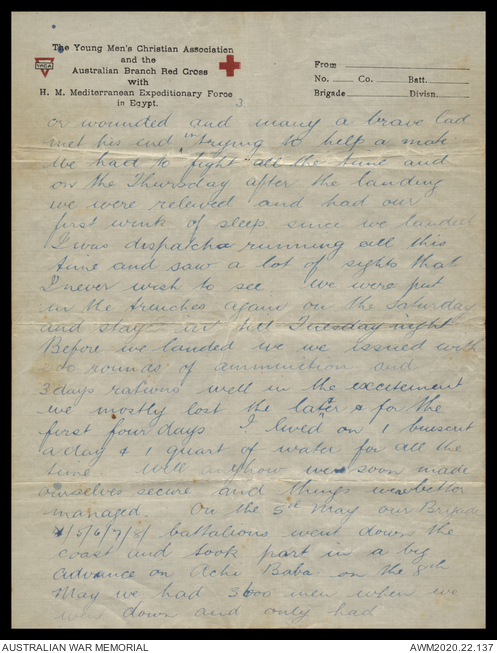 The Young Men's Christian Association
and the
Australian Branch Red Cross
with
H. M. Mediterranean Expeditionary Force
in Egypt.
YMCA
From
No. Co. Batt.
Brigade Divisn.
3.
or wounded and many a brave lad
met his end in trying to help a mate
We had to fight all the time and
on the Thursday after the landing
we were relieved and had our
first wink of sleep since we landed
I was despatch running all this
time and saw a lot of sights that
I never wish to see. We were put
in the trenches again on the Saturday
and stayed in till Tuesday night
Before we landed we we issued with
rounds of ammunition and
3 days rations well in the excitement
we mostly lost the later & for the
first four days I lived on 1 buiscut
a day & 1 quart of water for all the
time. Well anyhow we soon made
ourselves secure and things were better
managed. On the 5th May our Brigade
/5/6/7/8/ battalions went down the
coast and took part in a big
advance on Achi Baba on the 8th
May we had 3600 men when we
went down and only had
AUSTRALIAN WAR MEMORIAL
AWM2020.22.137